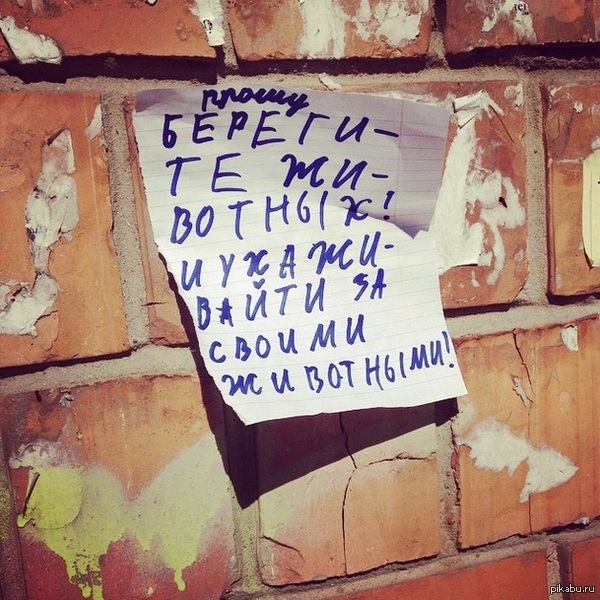 прошу
БЕРЕГИ-
ТЕ ЖИ-
ВОТНЫХ!
И УХАЖИ-
ВАЙТИ ЗА
СВОИМИ
ЖИВОТНЫМИ!
pikabu.ru